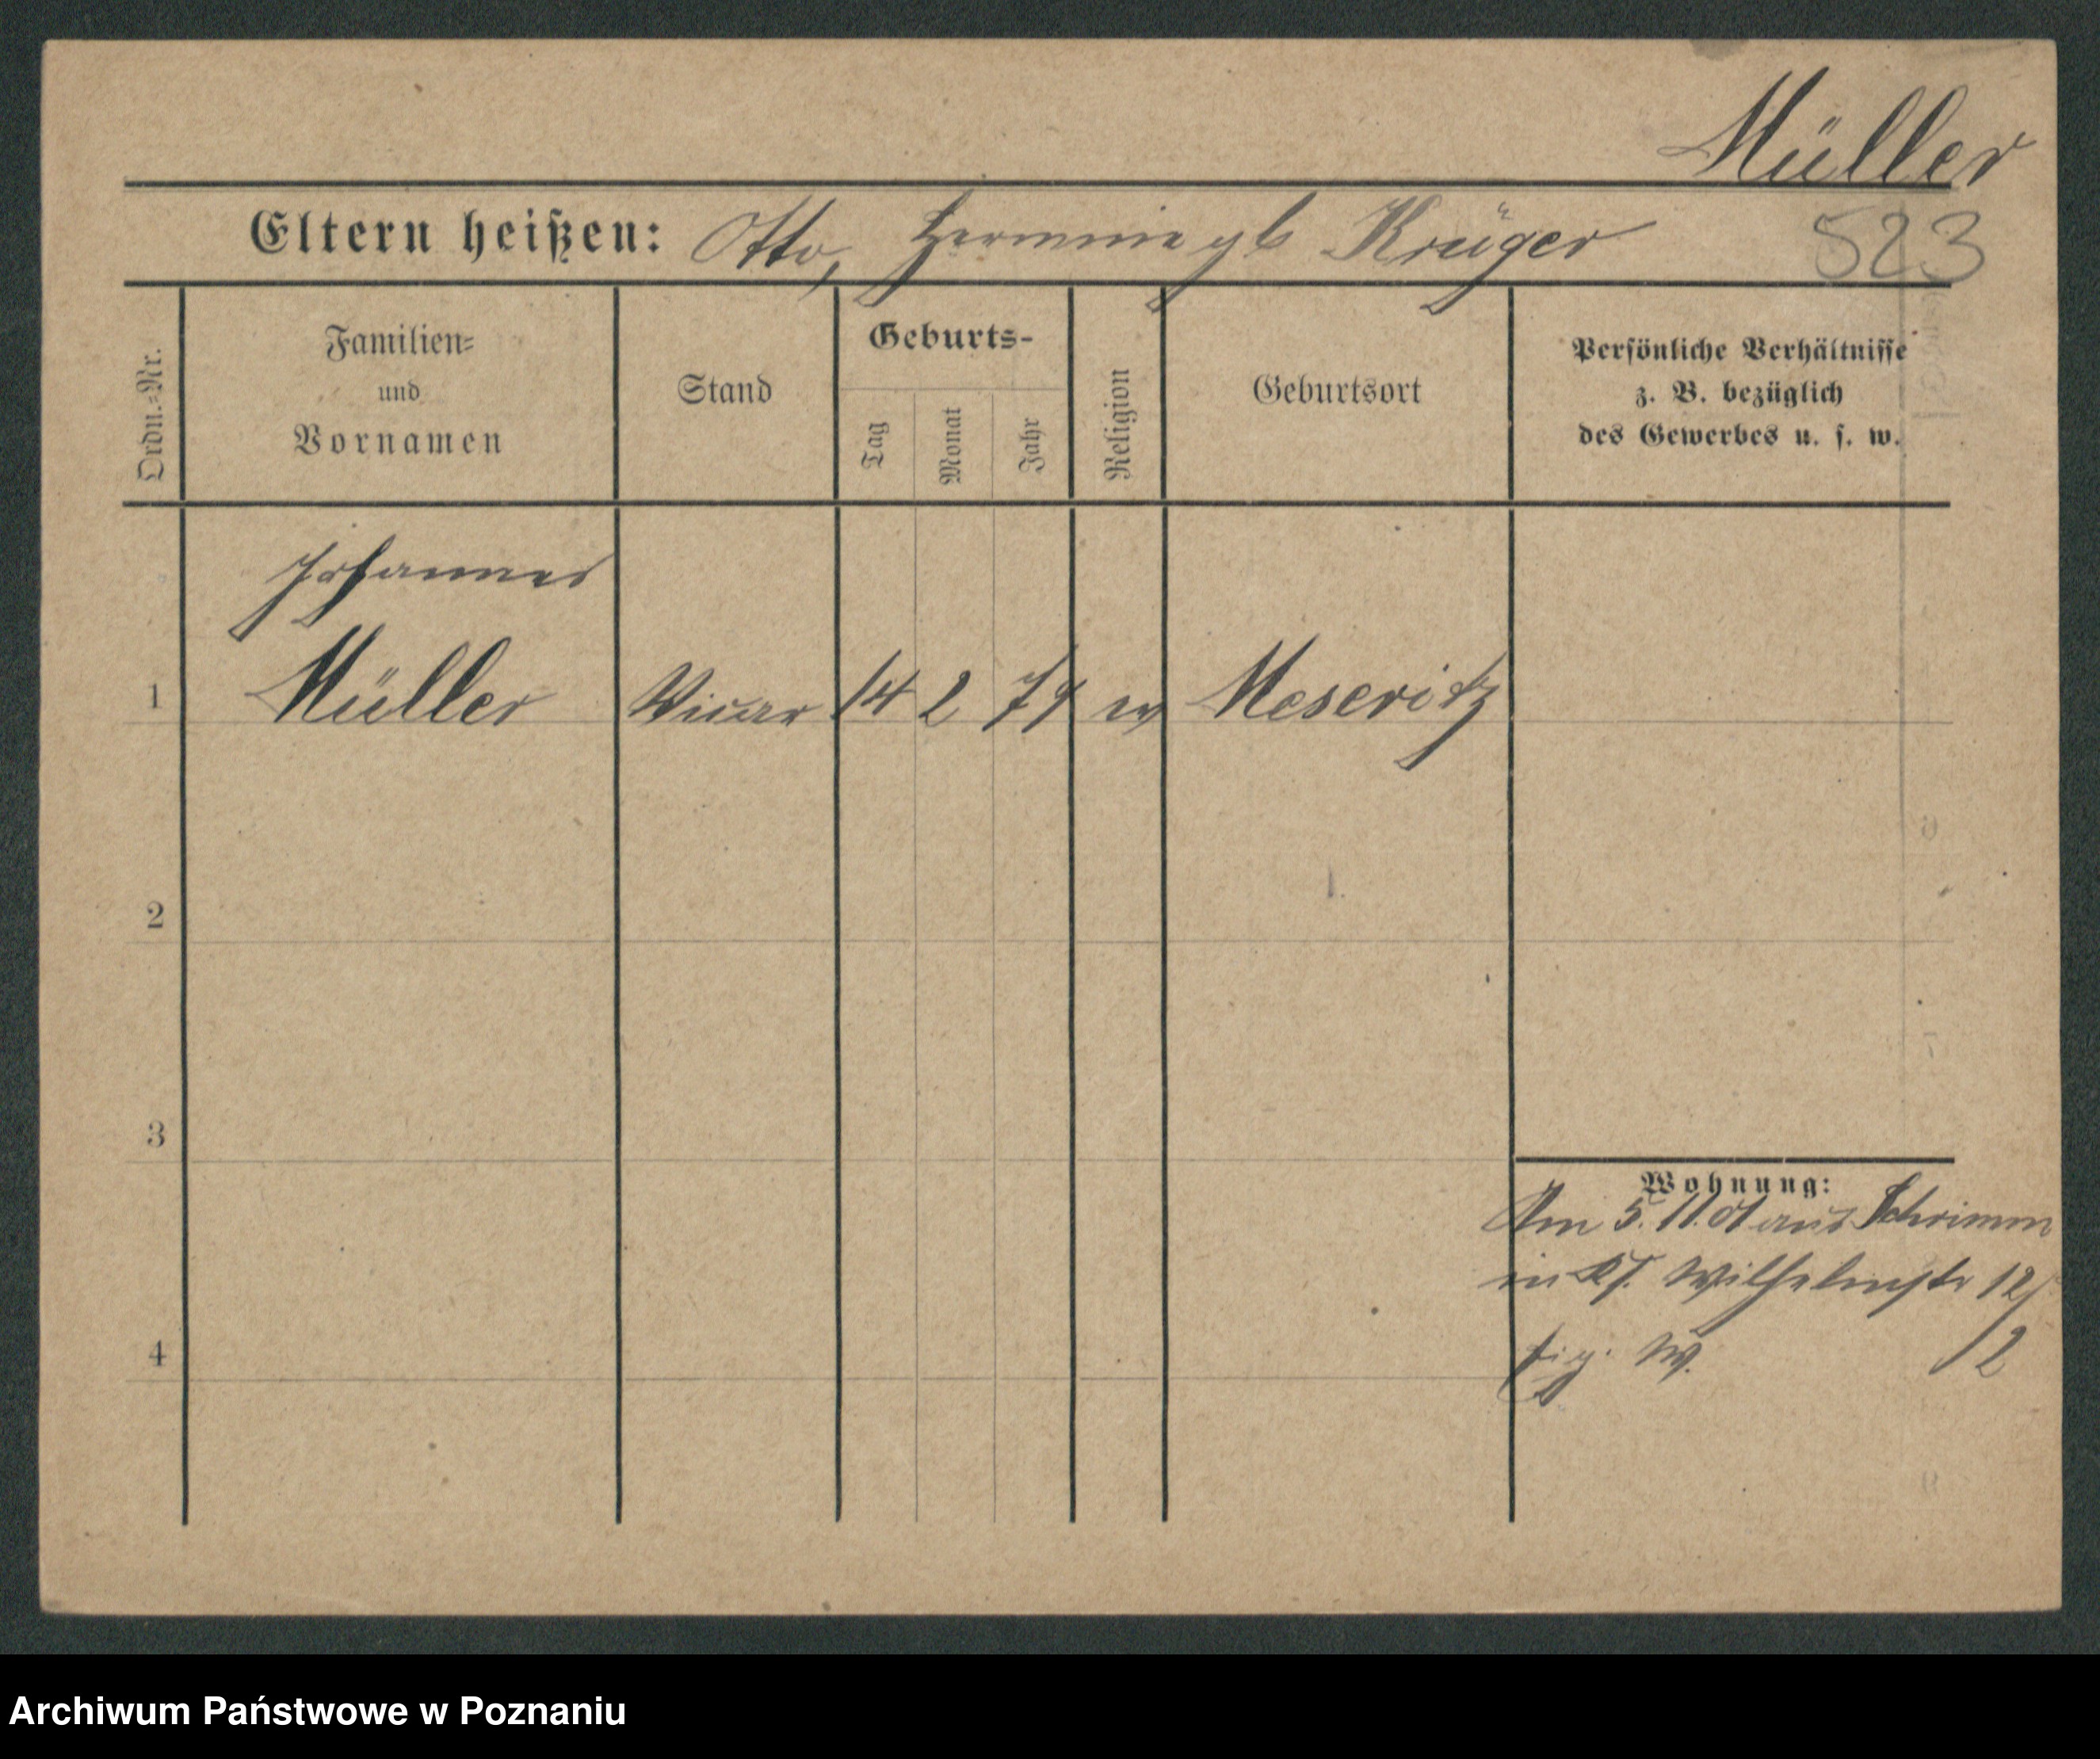 Müller
Eltern heißen: Otto, Hermine gb Krüger
523
Ordn.=Nr.
Familien=
und
Vornamen
Stand
Geburts-
Tag
Monat
Jahr
Religion
Geburtsort
Persönliche Verhältnisse
z. B. bezüglich
des Gewerbes u. s. w.
Johannes
1 Müller Vicar 14 2 74 ev Meseritz
2
3
4
Wohnung:
Am 5. 11. 01 aus Schrimm
in Wilhelmstr 12/
W. 12
Archiwum Państwowe w Poznaniu